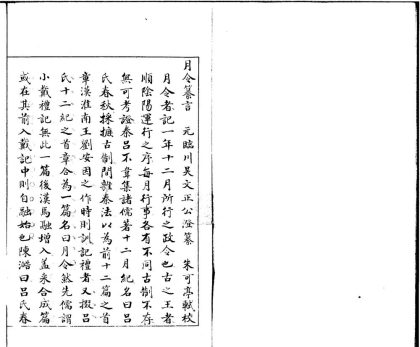 月令纂言　元臨川吳文正公澄纂　朱可亭軾校
月令者記一年十二月所行之政令也古之王者
順陰陽運行之序每月行事各有不同古制不存
無可考證秦呂不韋集諸儒著十二月紀名曰呂
氏春秋採摭古制間雜秦法以為前十二篇之首
章漢淮南王劉安因之作時則訓記禮者又掇呂
氏十二紀之首章合為一篇名曰月令然先儒謂
小戴禮記無此一篇後漢馬融增入蓋采合成篇
或在其前入戴記中則自融始也陳澔曰呂氏春